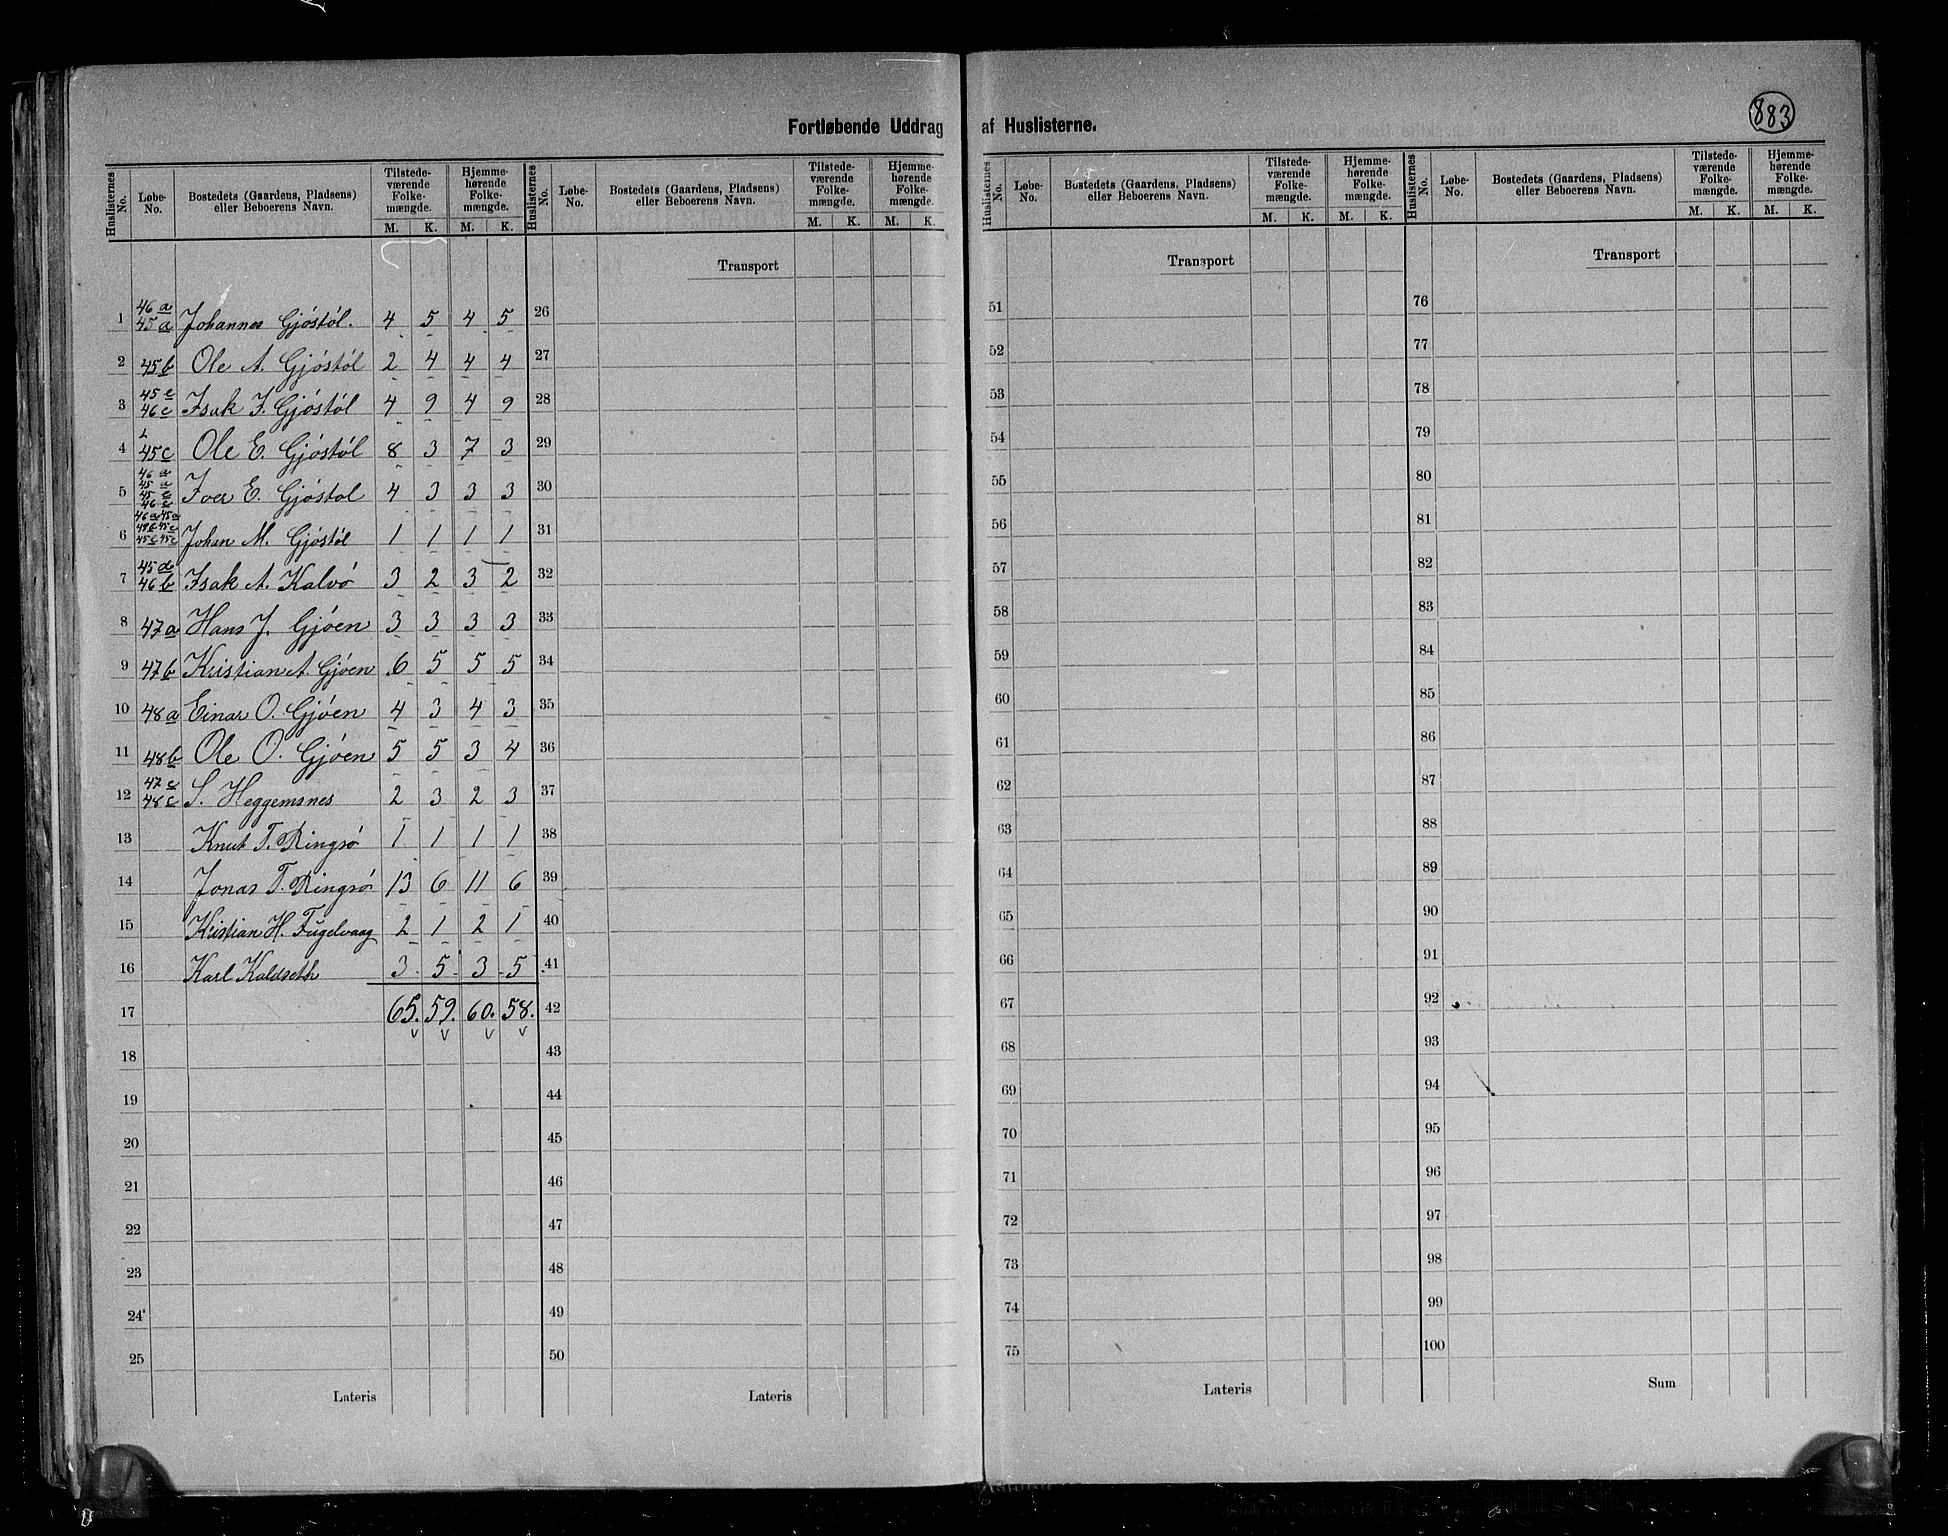 883
Fortløbende Uddrag af Huslisterne.
Huslisternes No. Løbe-No. Bostedets (Gaardens, Pladsens) eller Beboerens Navn. Tilstedeværende Folkemængde. M. K. Hjemmehørende Folkemængde. M. K.
Huslisternes No. Løbe-No. Bostedets (Gaardens, Pladsens) eller Beboerens Navn. Tilstedeværende Folkemængde. M. K. Hjemmehørende Folkemængde. M. K.
Huslisternes No. Løbe-No. Bostedets (Gaardens, Pladsens) eller Beboerens Navn. Tilstedeværende Folkemængde. M. K. Hjemmehørende Folkemængde. M. K.
Huslisternes No. Løbe-No. Bostedets (Gaardens, Pladsens) eller Beboerens Navn. Tilstedeværende Folkemængde. M. K. Hjemmehørende Folkemængde. M. K.
Transport Transport Transport
1 46a 45a Johannes Gjóstól. 4 5 4 5 26 51 76
2 45b Ole A. Gjóstól 2 4 4 4 27 52 77
3 45e 46c Isak J. Gjóstól 4 9 4 9 28 53 78
4 45c Ole E. Gjóstól 8 3 7 3 29 54 79
5 46a 45a 45e 46c Iver E. Gjóstol 4 3 3 3 30 55 80
6 46a 45a Johan M. Gjóstól 1 1 1 1 31 56 81
7 45d 46b Isak A. Kalvó 3 2 3 2 32 57 82
8 47a Hans J. Gjóen 3 3 3 3 33 58 83
9 47b Kristian A. Gjóen 6 5 5 5 34 59 84
10 48a Einar O. Gjóen 4 3 4 3 35 60 85
11 48b Ole O. Gjóen 5 5 3 4 36 61 86
12 47c 48c S. Heggemsnes 2 3 2 3 37 62 87
13 Knut T. Ringsó 1 1 1 1 38 63 88
14 Jonas T. Ringsó 13 6 11 6 39 64 89
15 Kristian H. Fugelvaag 2 1 2 1 40 65 90
16 Karl Kaldseth 3 5 3 5 41 66 91
17 65. 59. 60. 58. 42 67 92
18 43 68 93
19 44 69 94
20 45 70 95
21 46 71 96
22 47 72 97
23 48 73 98
24 49 74 99
25 50 75 100
Lateris Lateris Lateris Sum